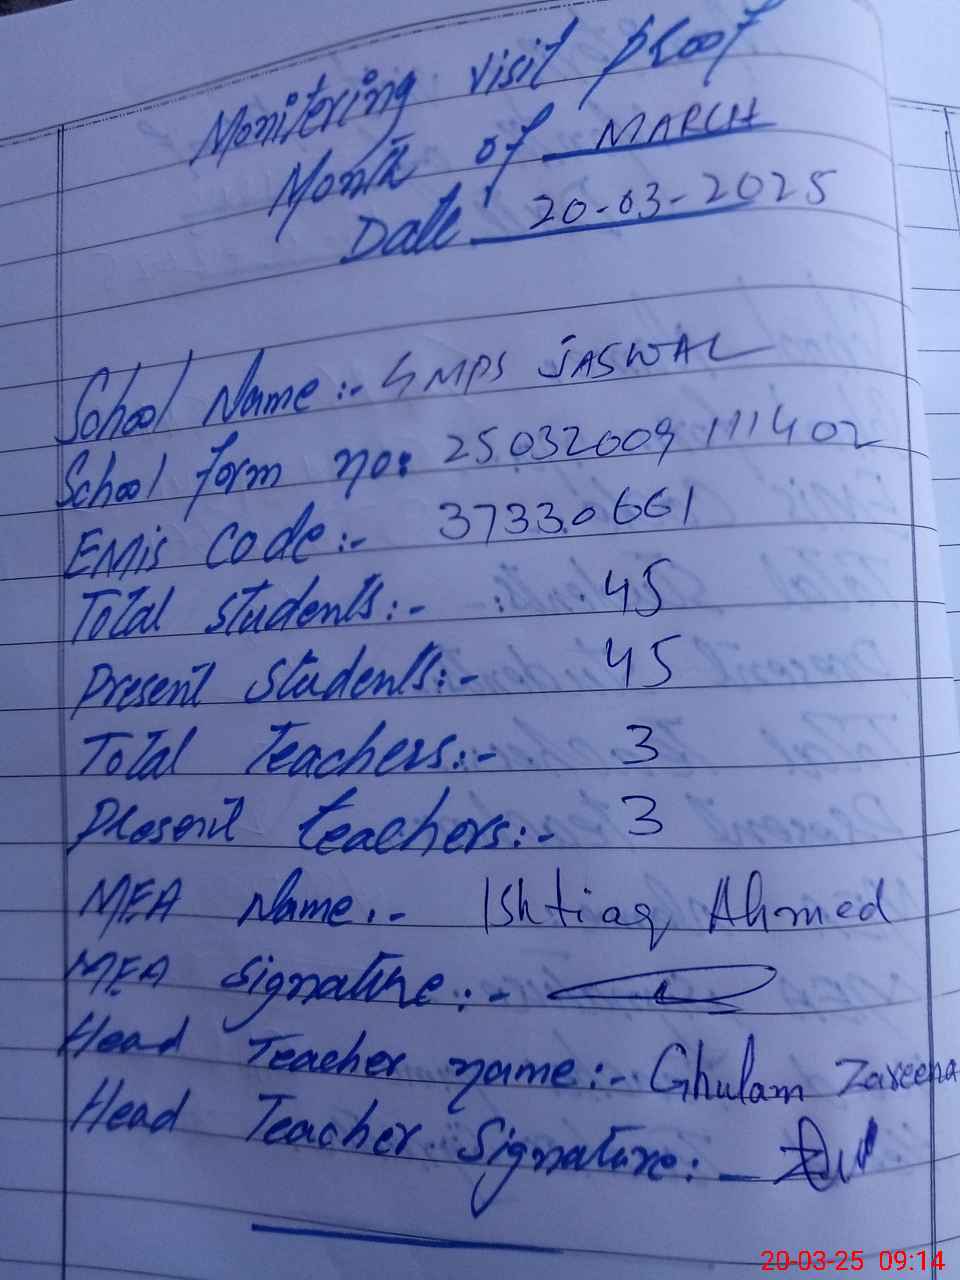 Monitering visit proof
Month of MARCH
Date 20-03-2025
School Name :- GMPS JASWAL
School form no: 25032009111402
EMis Code :- 37330661
Total students :- 45
Present students :- 45
Total teachers :- 3
Present teachers :- 3
MEA Name :- Ishtiaq Ahmed
MEA Signature :-
Head Teacher name :- Ghulam Zareena
Head Teacher Signature : -
20-03-25 09:14